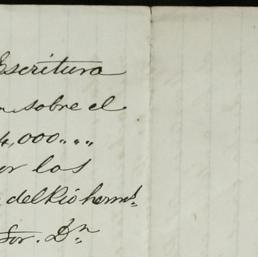 Escritura
sobre el
4,000.,,,
los
del Rio herms
Sor. Dn